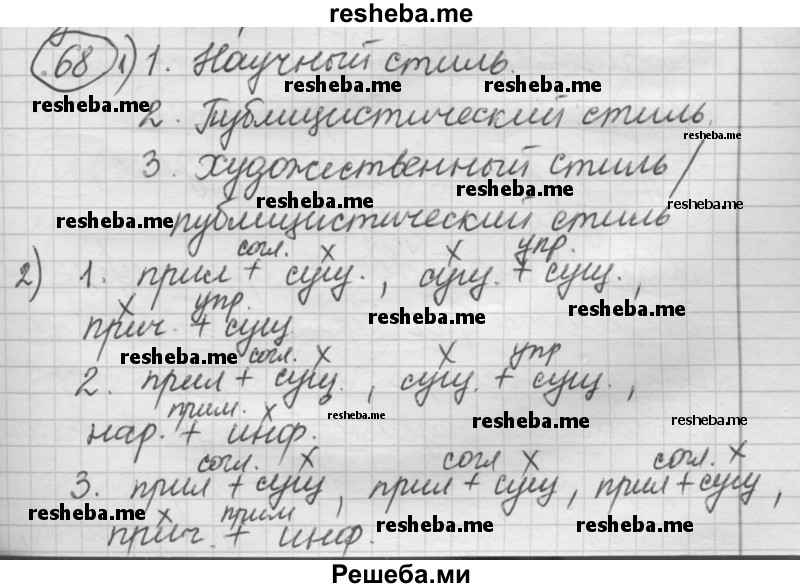 resheba.me
68 1) 1. Научный стиль.
resheba.me resheba.me resheba.me
2. Публицистический стиль.
resheba.me
3. Художественный стиль /
resheba.me resheba.me resheba.me
resheba.me публицистический стиль
согл. х х упр.
2) 1. прил + сущ., сущ. + сущ.,
х упр.
resheba.me resheba.me
прич. + сущ.
resheba.me согл. х х упр
2. прил + сущ., сущ. + сущ.,
прим. х resheba.me resheba.me resheba.me
нар. + инф.
согл. х согл х согл. х
3. прил + сущ, прил + сущ, прил + сущ,
resheba.me х прим resheba.me resheba.me
прич. + инф.
Решеба.ми